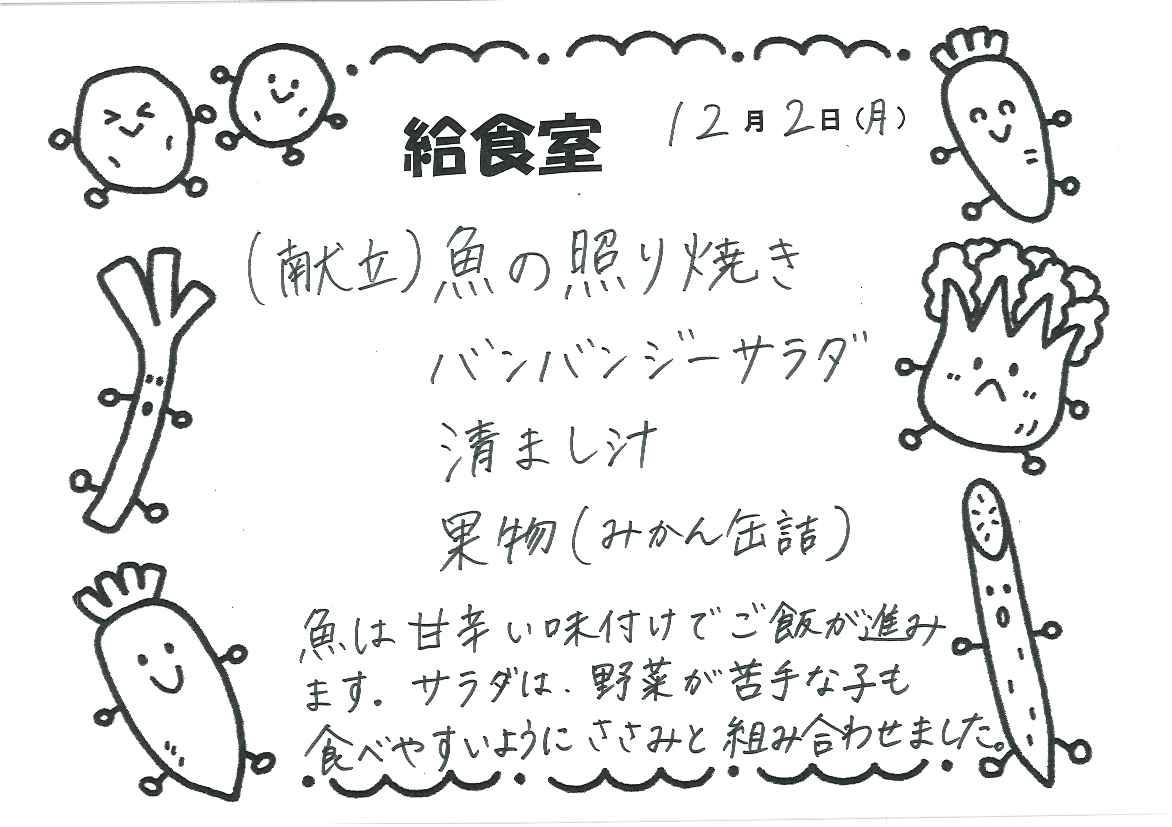 給食室
12月2日(月)
(献立)魚の照り焼き
バンバンジーサラダ
清まし汁
果物(みかん缶詰)
魚は甘辛い味付けでご飯が進み
ます。サラダは、野菜が苦手な子も
食べやすいようにささみと組み合わせました。